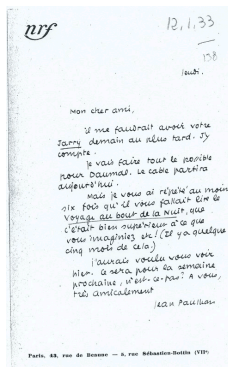 nrf
12.1.33
158
jeudi.
Mon cher ami,
il me faudrait avoir votre
Jarry demain au plus tard. J'y
compte.
Je vais faire tout le possible
pour Daumal. Le cable partira
aujourd'hui.
Mais je vous ai répété au moins
six fois qu'il vous fallait lire le
Voyage au bout de la Nuit, que
c'était bien supérieur à ce que
vous imaginiez etc! (Il y a quelque
cinq mois de cela.)
j'aurais voulu vous voir
hier. Ce sera pour la semaine
prochaine, n'est-ce-pas? A vous,
très amicalement
Jean Paulhan
Paris, 43, rue de Beaune — 5, rue Sébastien-Bottin (VIIᵉ)